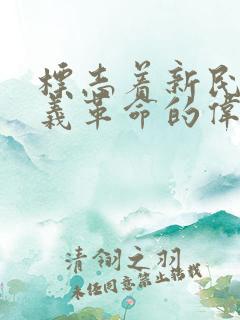 標志着新民
義革命的偉
清翎之羽
未经同意禁止转载